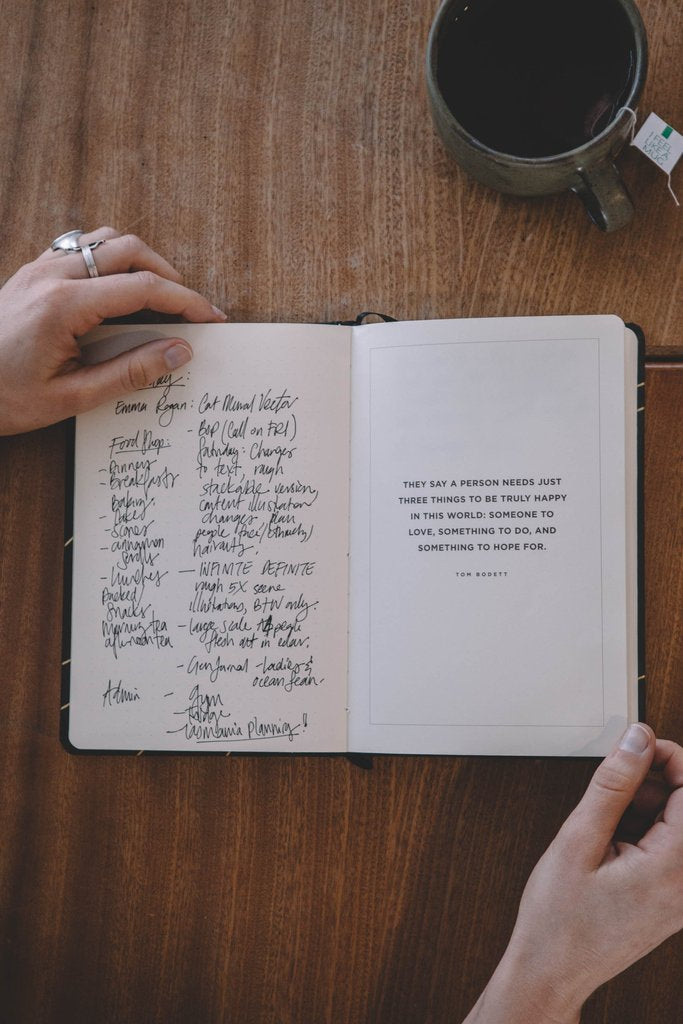 I FEEL
LIKE A
MUG
Emma Regan: Cat Mural Vector
- BOP (Call on FRI)
Saturday: Changes
to text, rough
stackable version,
content illustration
changes, plan
people face/ethnicity/
haircuts.
- INFINITE DEFINITE
rough 5X scene
illustrations, B+W only.
- large scale people
flesh out in colour.
- Gen Journal - Ladies &
ocean fean.
Food Shop:
- Dinners
- Breakfasts
Baking:
- Cakes
- Scones
- cinnamon
scrolls
- Lunches
Packed
Snacks
Morning tea
afternoon tea
Admin - Gym
- Fridge
- Tasmania Planning!
THEY SAY A PERSON NEEDS JUST
THREE THINGS TO BE TRULY HAPPY
IN THIS WORLD: SOMEONE TO
LOVE, SOMETHING TO DO, AND
SOMETHING TO HOPE FOR.
TOM BODETT